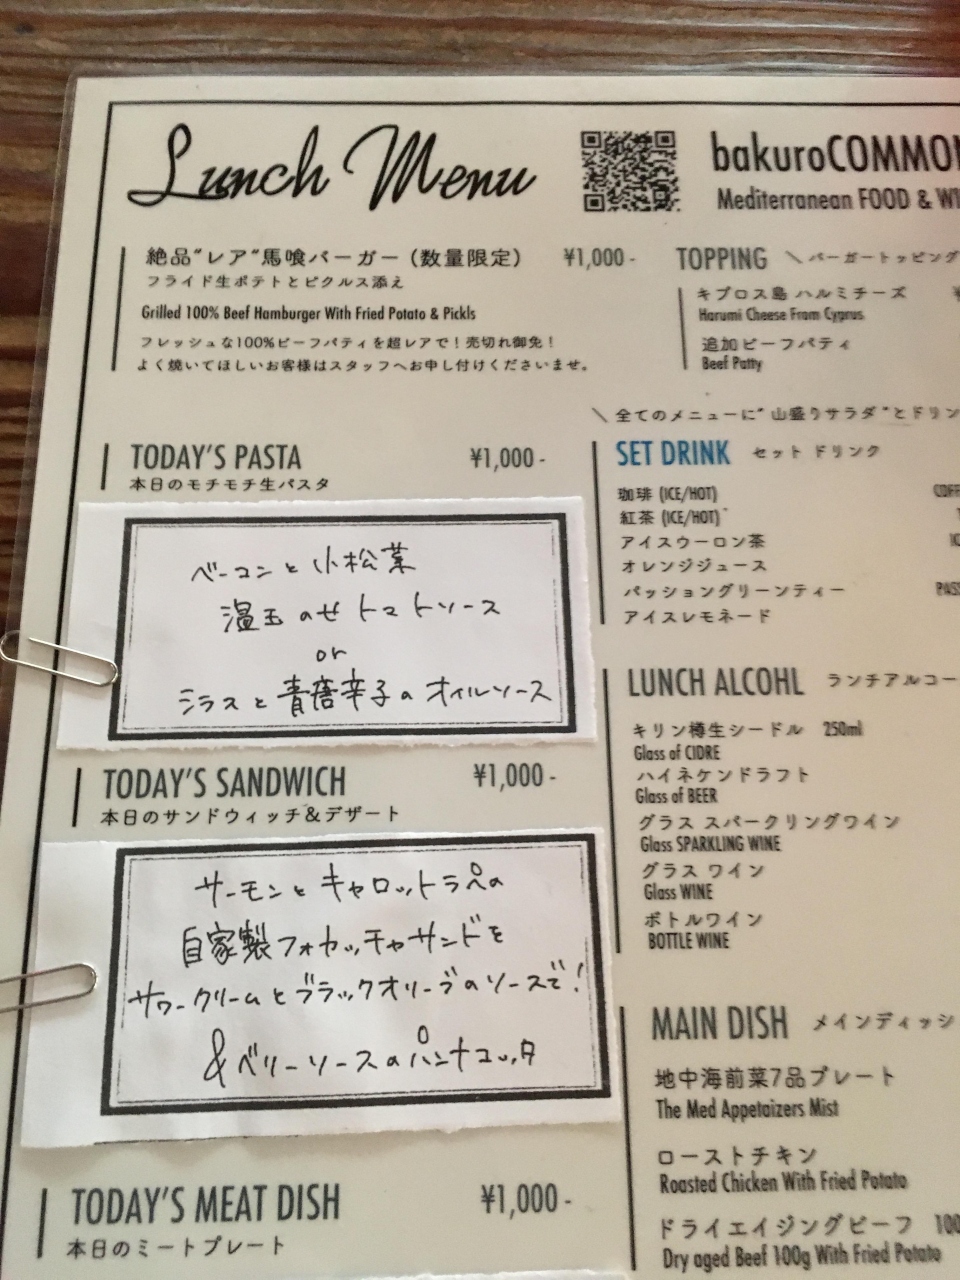 Lunch Menu
bakuroCOMMON
Mediterranean FOOD &
絶品"レア"馬喰バーガー（数量限定） ¥1,000 -
フライド生ポテトとピクルス添え
Grilled 100% Beef Hamburger With Fried Potato & Pickls
フレッシュな100%ビーフパティを超レアで！売切れ御免！
よく焼いてほしいお客様はスタッフへお申し付けくださいませ。
TOPPING \ バーガートッピング
キプロス島 ハルミチーズ
Harumi Cheese From Cyprus
追加ビーフパティ
Beef Patty
\ 全てのメニューに"山盛りサラダ"とドリン
TODAY'S PASTA ¥1,000 -
本日のモチモチ生パスタ
ベーコンと小松菜
温玉のせトマトソース
or
シラスと青唐辛子のオイルソース
TODAY'S SANDWICH ¥1,000 -
本日のサンドウィッチ&デザート
サーモンとキャロットラペの
自家製フォカッチャサンドを
サワークリームとブラックオリーブのソースで！
&ベリーソースのパンナコッタ
TODAY'S MEAT DISH ¥1,000 -
本日のミートプレート
SET DRINK セット ドリンク
珈琲 (ICE/HOT) COFF
紅茶 (ICE/HOT)
アイスウーロン茶
オレンジジュース
パッショングリーンティー PASS
アイスレモネード
LUNCH ALCOHL ランチアルコー
キリン樽生シードル 250ml
Glass of CIDRE
ハイネケンドラフト
Glass of BEER
グラス スパークリングワイン
Glass SPARKLING WINE
グラス ワイン
Glass WINE
ボトルワイン
BOTTLE WINE
MAIN DISH メインディッシ
地中海前菜7品プレート
The Med Appetaizers Mist
ローストチキン
Roasted Chicken With Fried Potato
ドライエイジングビーフ 100
Dry aged Beef 100g With Fried Potato